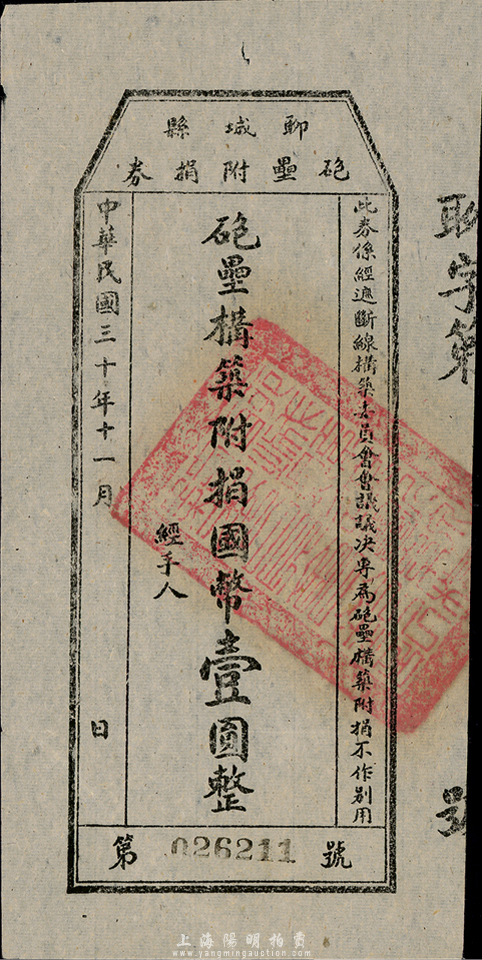 聊城縣
砲壘附捐券
此券係經遮斷線構築委員會會議議决專為砲壘構築附捐不作别用
砲壘構築附捐國幣壹圓整
經手人
中華民國三十年十一月 日
第 026211 號
聊字第 號
上海陽明拍賣
www.yangmingauction.com